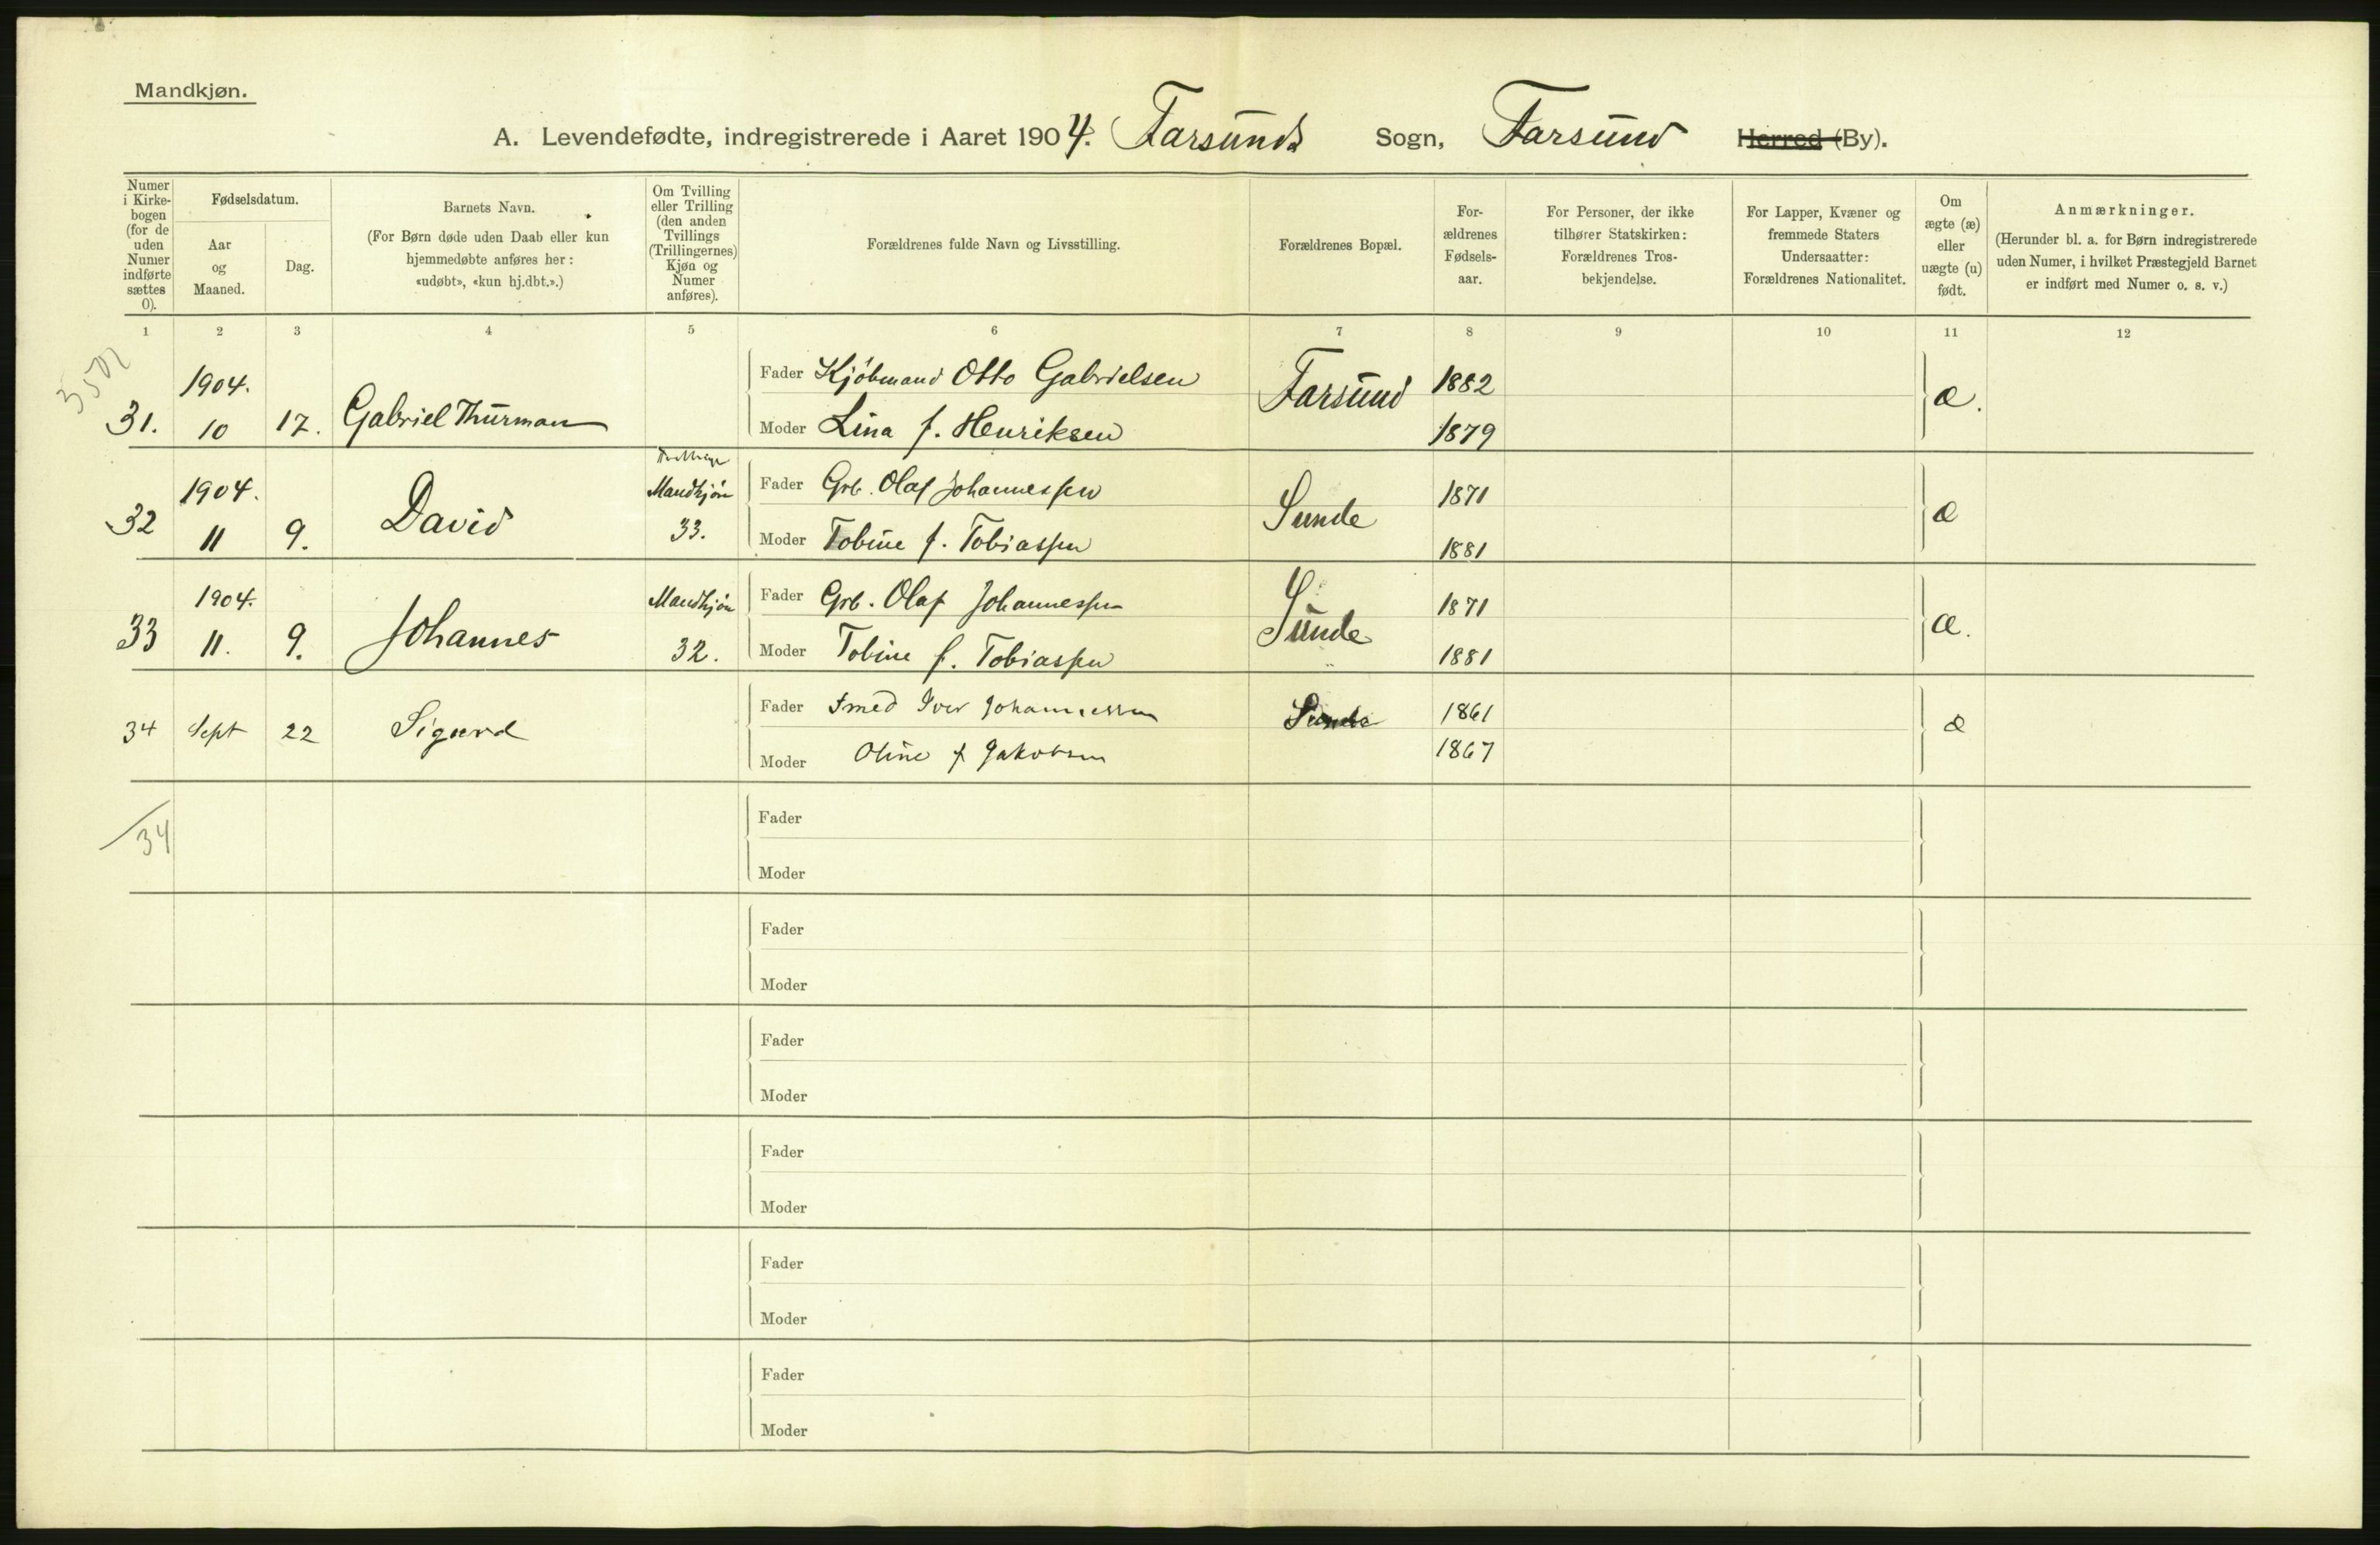 Mandkjøn.
A. Levendefødte, indregistrerede i Aaret 1904. Farsunds Sogn, Farsund Herred (By).
Numer i Kirke-bogen (for de uden Numer indførte sættes 0).
Fødselsdatum.
Aar og Maaned.
Dag.
Barnets Navn.
(For Børn døde uden Daab eller kun hjemmedøbte anføres her: «udøbt», «kun hj.dbt.».)
Om Tvilling eller Trilling (den anden Tvillings (Trillingernes) Kjøn og Numer anføres).
Forældrenes fulde Navn og Livsstilling.
Forældrenes Bopæl.
For-ældrenes Fødsels-aar.
For Personer, der ikke tilhører Statskirken: Forældrenes Tros-bekjendelse.
For Lapper, Kvæner og fremmede Staters Undersaatter: Forældrenes Nationalitet.
Om ægte (æ) eller uægte (u) født.
Anmærkninger.
(Herunder bl. a. for Børn indregistrerede uden Numer, i hvilket Præstegjeld Barnet er indført med Numer o. s. v.)
1 2 3 4 5 6 7 8 9 10 11 12
31. 1904. 10 17. Gabriel Thurman Fader Kjøbmand Otto Gabrielsen Farsund 1882 æ.
Moder Lina f. Henriksen 1879
32 1904. 11 9. David Mandkjøn 33. Fader Grb. Olaf Johannessen Sunde 1871 æ
Moder Tobine f. Tobiassen 1881
33 1904. 11. 9. Johannes Mandkjøn 32. Fader Grb. Olaf Johannessen Sunde 1871 æ.
Moder Tobine f. Tobiassen 1881
34 Sept 22 Sigurd Fader Smed Iver Johannessen Sunde 1861 æ
Moder Oline f Jakobsen 1867
34
Fader
Moder
Fader
Moder
Fader
Moder
Fader
Moder
Fader
Moder
Fader
Moder